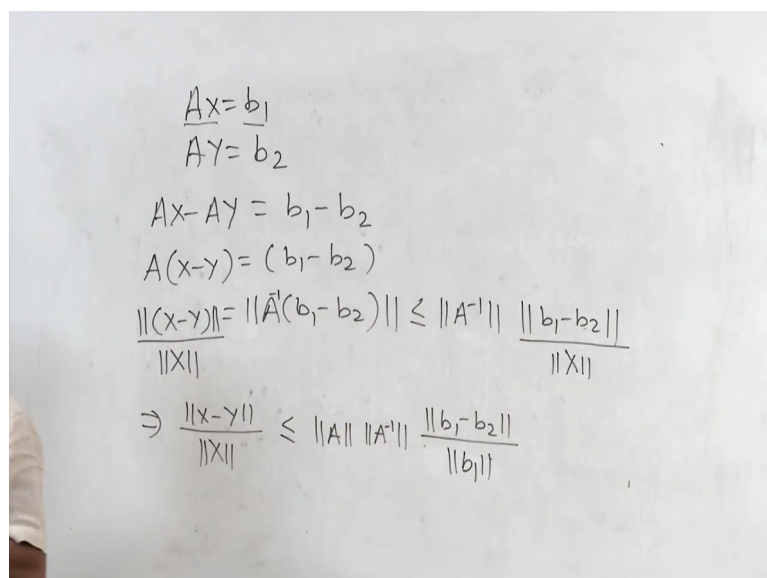 AX = b₁
AY = b₂
AX - AY = b₁ - b₂
A(X-Y) = (b₁ - b₂)
||(X-Y)||/||X|| = ||A⁻¹(b₁ - b₂)|| ≤ ||A⁻¹|| ||b₁ - b₂||/||X||
⇒ ||X-Y||/||X|| ≤ ||A|| ||A⁻¹|| ||b₁ - b₂||/||b₁||